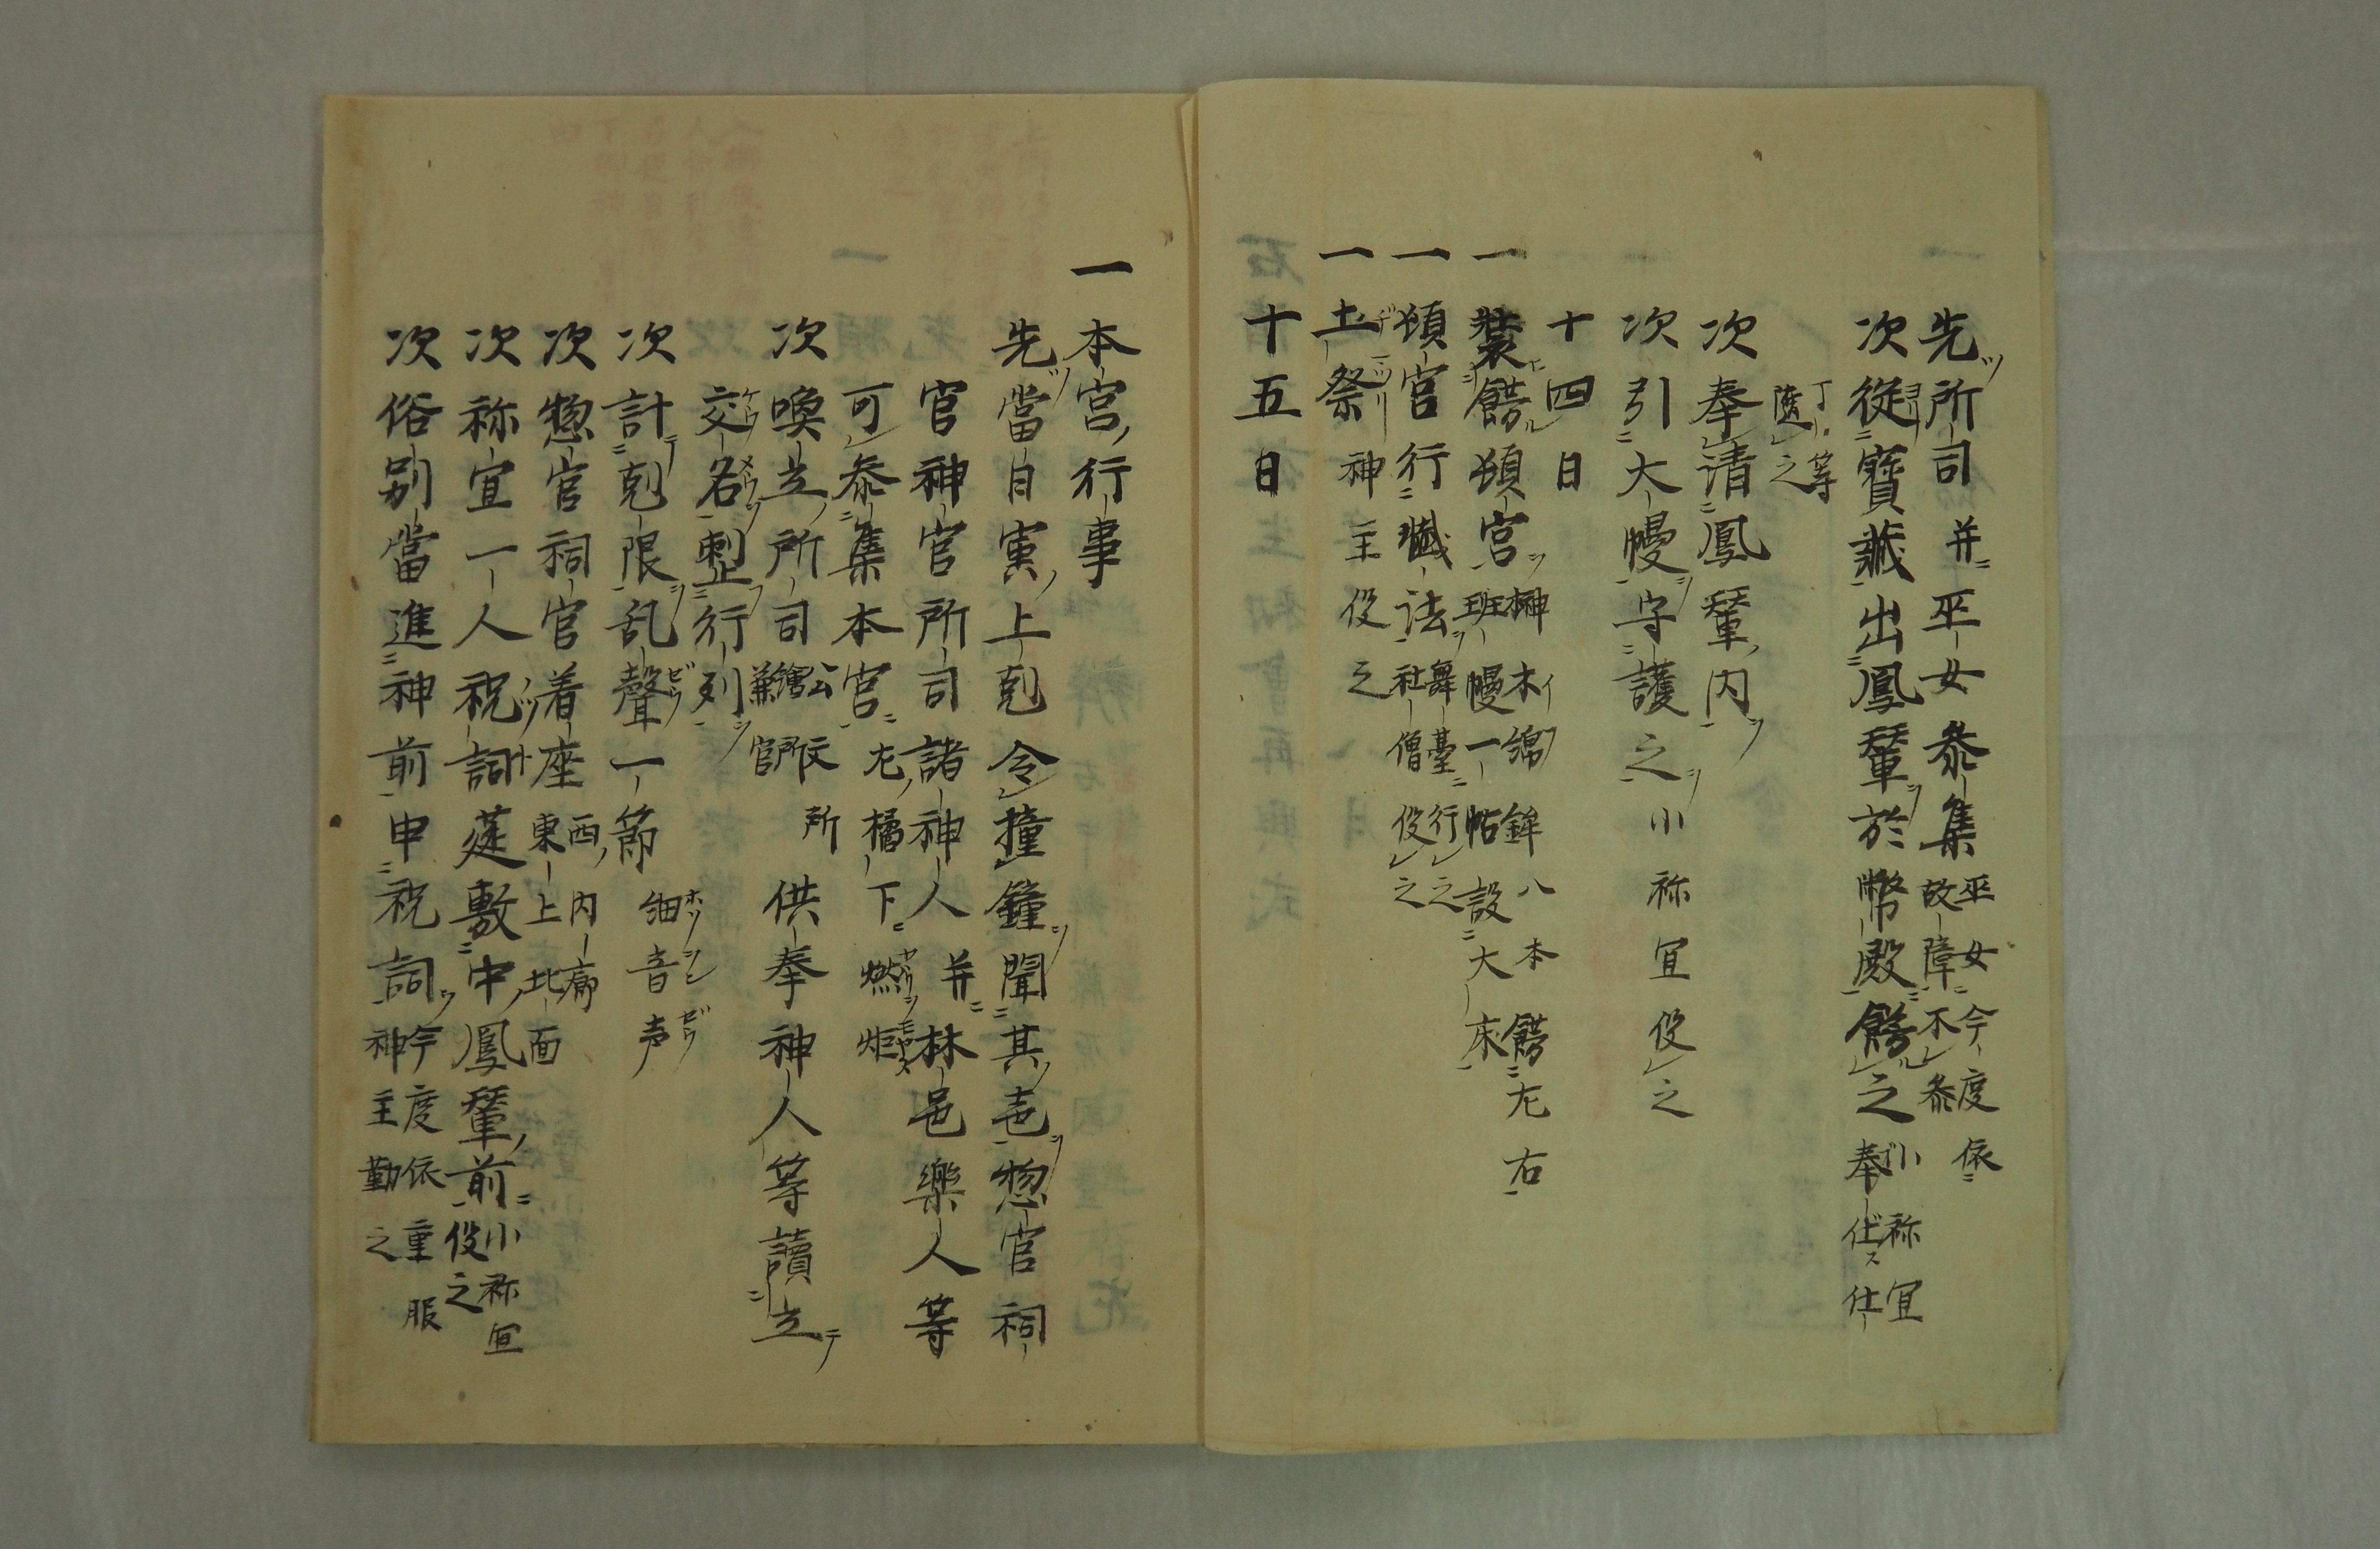 先所司并巫女参集巫女今度依故障不参
次従寶蔵出鳳輦於幣殿餝之小祢宜奉仕仕
丁等随之
次奉請鳳輦内
次引大幔守護之小祢宜役之
十四日
一装餝頓宮榊木綿鉾八本餝左右班幔一帖設大床
一頓宮行懺法舞臺行之社僧役之
一土祭神主役之
十五日
一本宮行事
先當日寅上剋令撞鐘聞其㐵惣官祠
官神官所司諸神人并林邑樂人等
可参集本宮左橘下燃炬
次喚立所司公文所繪所兼官供奉神人等讀立
交名刺止行列
次計剋限乱聲一節細音声
次惣官祠官着座西内廊東上北面
次祢宜一人祝詞莚敷中鳳輦前小祢宜役之
次俗別當進神前申祝詞今度依重服神主勤之